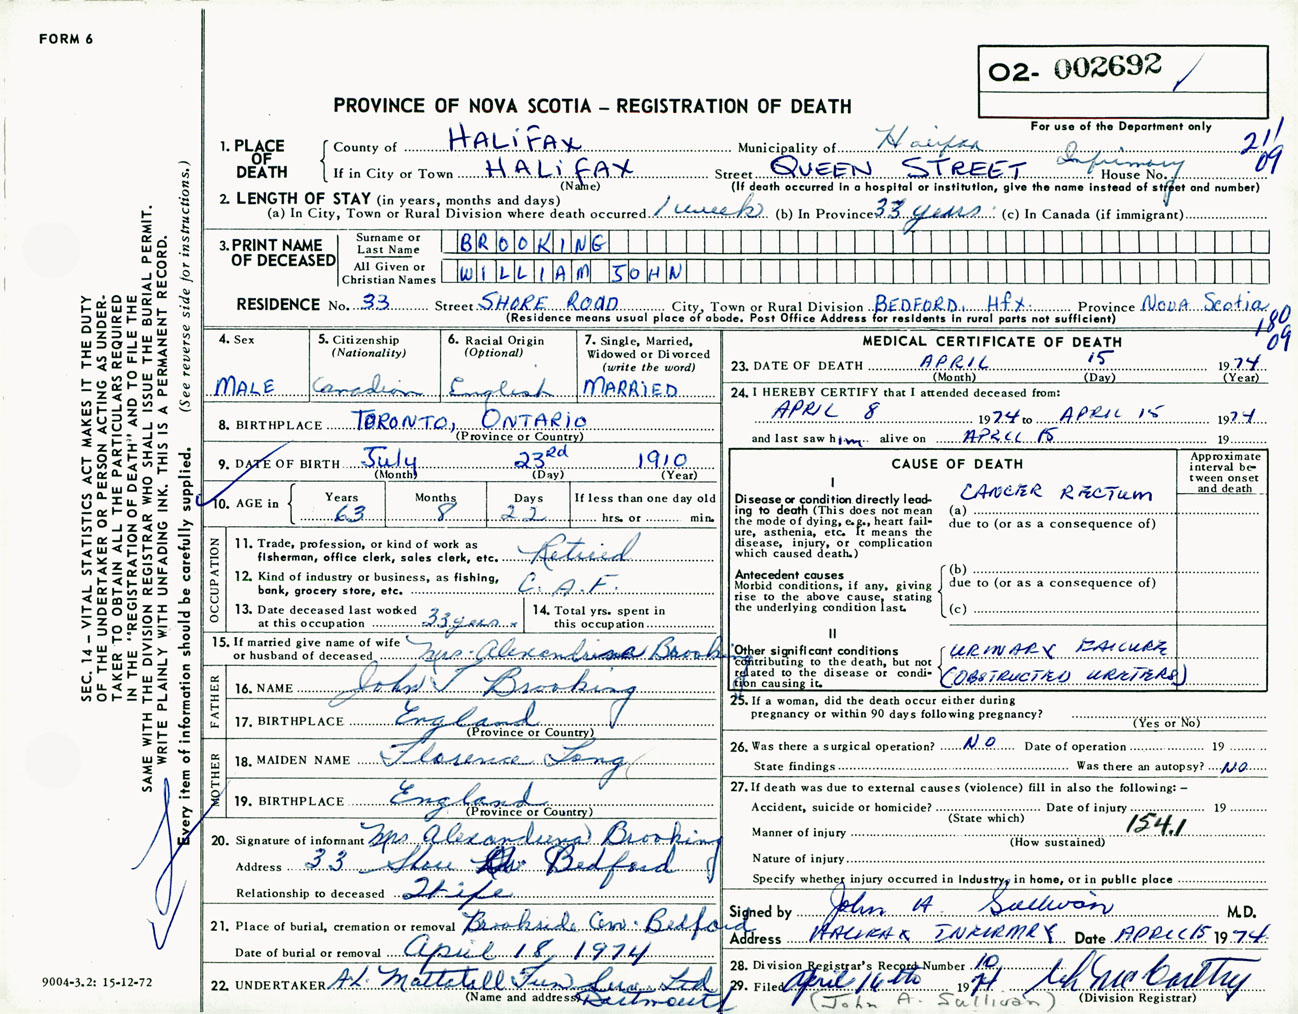 FORM 6
O2- 002692
PROVINCE OF NOVA SCOTIA – REGISTRATION OF DEATH
For use of the Department only
211
09
1. PLACE OF DEATH
County of HALIFAX Municipality of Halifax
If in City or Town HALIFAX Street QUEEN STREET Infirmary House No.
(Name) (If death occurred in a hospital or institution, give the name instead of street and number)
2. LENGTH OF STAY (in years, months and days)
(a) In City, Town or Rural Division where death occurred 1 week (b) In Province 33 years (c) In Canada (if immigrant)
3. PRINT NAME OF DECEASED
Surname or Last Name BROOKING
All Given or Christian Names WILLIAM JOHN
RESIDENCE No. 33 Street SHORE ROAD City, Town or Rural Division BEDFORD, Hfx. Province Nova Scotia
(Residence means usual place of abode. Post Office Address for residents in rural parts not sufficient)
180
09
4. Sex MALE
5. Citizenship (Nationality) Canadian
6. Racial Origin (Optional) English
7. Single, Married, Widowed or Divorced (write the word) MARRIED
8. BIRTHPLACE TORONTO, ONTARIO
(Province or Country)
9. DATE OF BIRTH July 23rd 1910
(Month) (Day) (Year)
10. AGE in Years 63 Months 8 Days 22 If less than one day old hrs. or min.
OCCUPATION
11. Trade, profession, or kind of work as fisherman, office clerk, sales clerk, etc. Retired
12. Kind of industry or business, as fishing, bank, grocery store, etc. C. A. F.
13. Date deceased last worked at this occupation 33 years
14. Total yrs. spent in this occupation
15. If married give name of wife or husband of deceased Mrs. Alexandrina Brooking
FATHER
16. NAME John T Brooking
17. BIRTHPLACE England
(Province or Country)
MOTHER
18. MAIDEN NAME Florence Long
19. BIRTHPLACE England
(Province or Country)
20. Signature of informant Mrs Alexandrina Brooking
Address 33 Shore Bedford
Relationship to deceased Wife
21. Place of burial, cremation or removal Brookside Cem. Bedford
Date of burial or removal April 18, 1974
22. UNDERTAKER A.L. Mattatall Fun Serv. Ltd
(Name and address) Dartmouth
MEDICAL CERTIFICATE OF DEATH
23. DATE OF DEATH APRIL 15 1974
(Month) (Day) (Year)
24. I HEREBY CERTIFY that I attended deceased from:
APRIL 8 1974 to APRIL 15 1974
and last saw him alive on APRIL 15 19
CAUSE OF DEATH
Approximate interval between onset and death
I
Disease or condition directly leading to death (This does not mean the mode of dying, e.g., heart failure, asthenia, etc. It means the disease, injury, or complication which caused death.)
CANCER RECTUM
(a)
due to (or as a consequence of)
Antecedent causes
Morbid conditions, if any, giving rise to the above cause, stating the underlying condition last.
(b)
due to (or as a consequence of)
(c)
II
Other significant conditions contributing to the death, but not related to the disease or condition causing it.
URINARY FAILURE
(OBSTRUCTED URETERS)
25. If a woman, did the death occur either during pregnancy or within 90 days following pregnancy?
(Yes or No)
26. Was there a surgical operation? NO Date of operation 19
State findings Was there an autopsy? NO
27. If death was due to external causes (violence) fill in also the following: –
Accident, suicide or homicide? Date of injury 19
(State which) 154.1
Manner of injury
(How sustained)
Nature of injury
Specify whether injury occurred in industry, in home, or in public place
Signed by John A. Sullivan M.D.
Address HALIFAX INFIRMRY Date APRIL 15 1974.
28. Division Registrar's Record Number 10
29. Filed April 16th 1974
(John A. Sullivan) (Division Registrar)
SEC. 14 – VITAL STATISTICS ACT MAKES IT THE DUTY
OF THE UNDERTAKER OR PERSON ACTING AS UNDER-
TAKER TO OBTAIN ALL THE PARTICULARS REQUIRED
IN THE "REGISTRATION OF DEATH" AND TO FILE THE
SAME WITH THE DIVISION REGISTRAR WHO SHALL ISSUE THE BURIAL PERMIT.
WRITE PLAINLY WITH UNFADING INK. THIS IS A PERMANENT RECORD.
Every item of information should be carefully supplied. (See reverse side for instructions.)
9004-3.2: 15-12-72